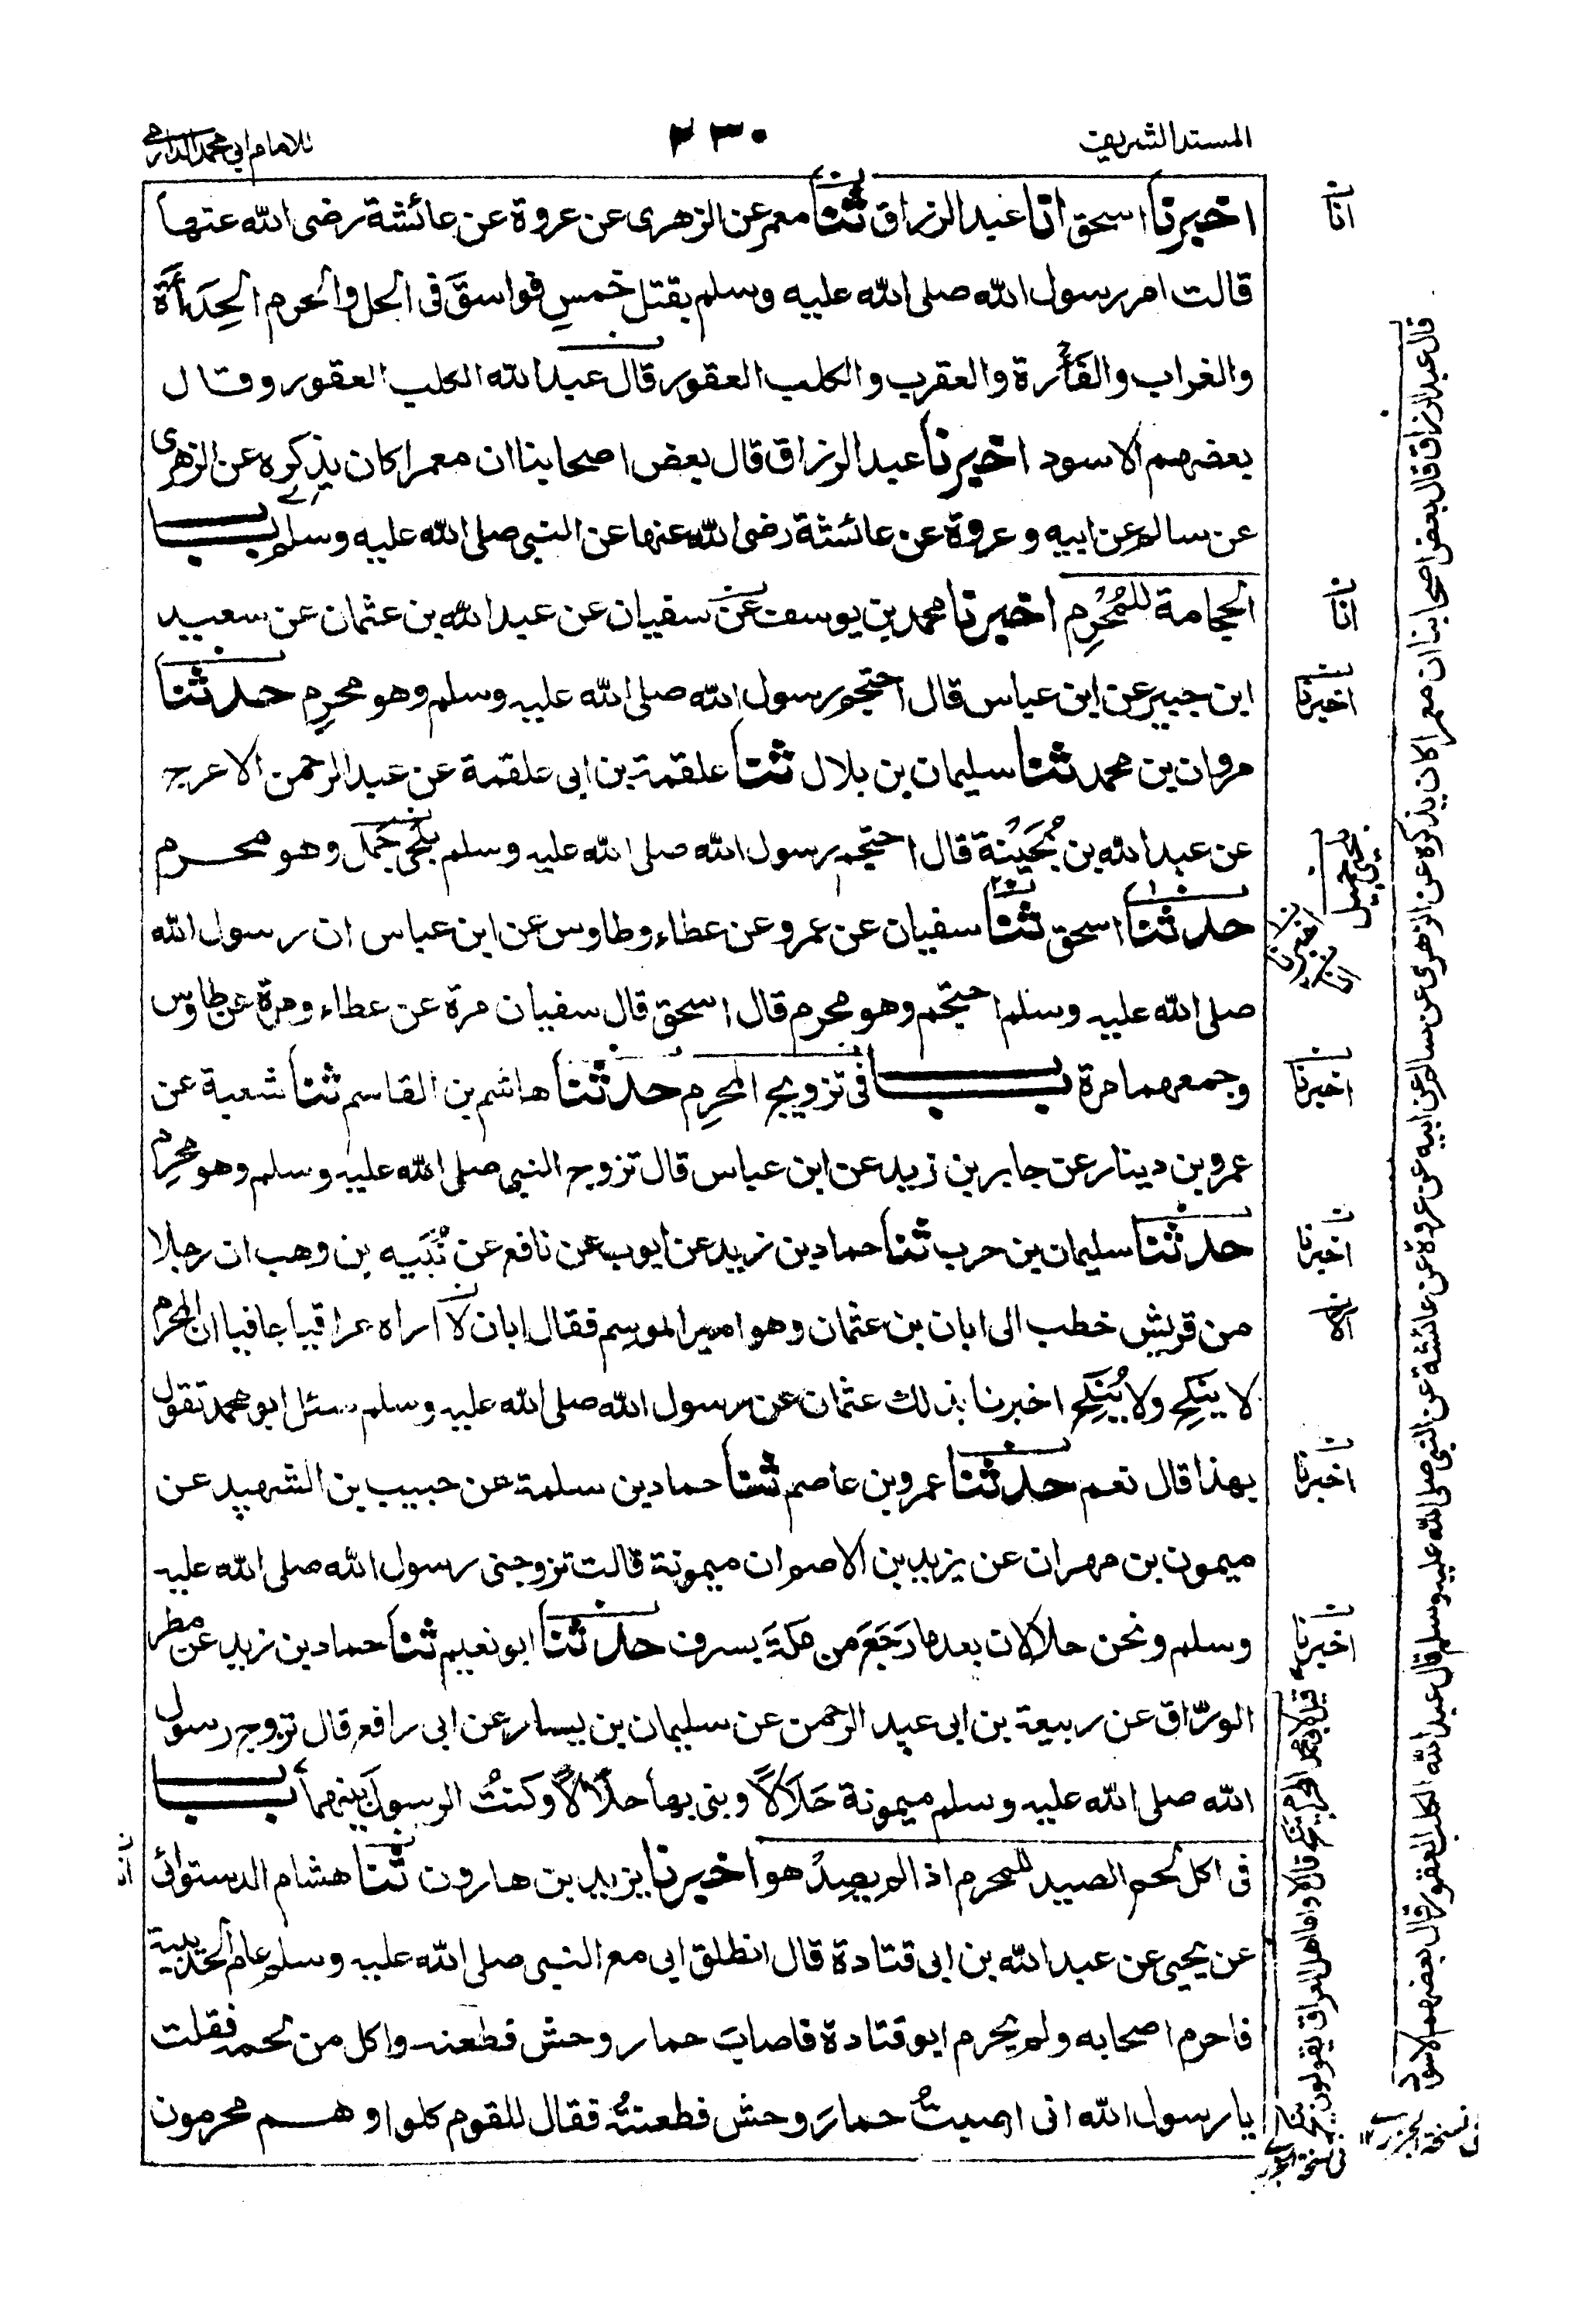 المسند الشريف
٢٣٠
للامام ابي محمد الدارمي
اخبرنا اسحق انا عبد الرزاق ثنا معمر عن الزهرى عن عروة عن عائشة رضى الله عنها
قالت امر رسول الله صلى الله عليه وسلم بقتل خمسِ فواسقَ فى الحل والحرم الحِدَأَة
والغراب والفَأْرة والعقرب والكلب العقور قال عبد الله الكلب العقور وقال
بعضهم الاسود اخبرنا عبد الرزاق قال بعض اصحابنا ان معمرا كان يذكره عن الزهرى
عن سالم عن ابيه وعروة عن عائشة رضى الله عنها عن النبى صلى الله عليه وسلم باب
الحجامة للمُحْرِم اخبرنا محمد بن يوسف عن سفيان عن عبد الله بن عثمان عن سعيد
ابن جبير عن ابن عباس قال احتجم رسول الله صلى الله عليه وسلم وهو محرِم حدثنا
مروان بن محمد ثنا سليمان بن بلال ثنا علقمة بن ابى علقمة عن عبد الرحمن الاعرج
عن عبد الله بن بُحَيْنَة قال احتجم رسول الله صلى الله عليه وسلم بلَحْى جَمَل وهو محرم
حدثنا اسحق ثنا سفيان عن عمرو عن عطاء وطاوس عن ابن عباس ان رسول الله
صلى الله عليه وسلم احتجم وهو محرم قال اسحق قال سفيان مرة عن عطاء ومرة عن طاوس
وجمعهما مرة باب فى تزويج المحرِم حدثنا هاشم بن القاسم ثنا شعبة عن
عمرو بن دينار عن جابر بن زيد عن ابن عباس قال تزوج النبى صلى الله عليه وسلم وهو محرِم
حدثنا سليمان بن حرب ثنا حماد بن زيد عن ايوب عن نافع عن نُبَيه بن وهب ان رجلا
من قريش خطب الى ابان بن عثمان وهو امير الموسم فقال ابان لا اراه عراقيا جافيا ان المحرم
لا يَنكِح ولا يُنكِح اخبرنا بذلك عثمان عن رسول الله صلى الله عليه وسلم سئل ابو محمد تقول
بهذا قال نعم حدثنا عمرو بن عاصم ثنا حماد بن سلمة عن حبيب بن الشهيد عن
ميمون بن مهران عن يزيد بن الاصم ان ميمونة قالت تزوجنى رسول الله صلى الله عليه
وسلم ونحن حلالان بعد ما رَجَعَ من مكةَ بسرف حدثنا ابو نعيم ثنا حماد بن زيد عن مطر
الورّاق عن ربيعة بن ابى عبد الرحمن عن سليمان بن يسار عن ابى رافع قال تزوج رسول
الله صلى الله عليه وسلم ميمونة حَلَالًا وبنى بها حلالًا وكنتُ الرسولَ بينهما باب
فى اكل لحم الصيد للمحرم اذا لم يصِدْ هو اخبرنا يزيد بن هارون ثنا هشام الدستوائى
عن يحيى عن عبد الله بن ابى قتادة قال انطلق ابى مع النبى صلى الله عليه وسلم عام الحديبية
فاحرم اصحابه ولم يحرم ابو قتادة فاصابَ حمار وحش فطعنه واكل من لحمه فقلت
يا رسول الله انى اصبتُ حمارَ وحش فطعنتُه فقال للقوم كلوا وهم محرمون
انا
انا
اخبرنا
بلحيى جمل
اخبرنا
انا
اخبرنا
اخبرنا
اخبرنا
اخبرنا
انا
قال عبد الرزاق قال بعض اصحابنا ان معمرا كان يذكره عن الزهرى عن سالم عن ابيه عن عروة عن عائشة عن النبى صلى الله عليه وسلم قال عبد الله الكلب العقور قال بعضهم الاسود